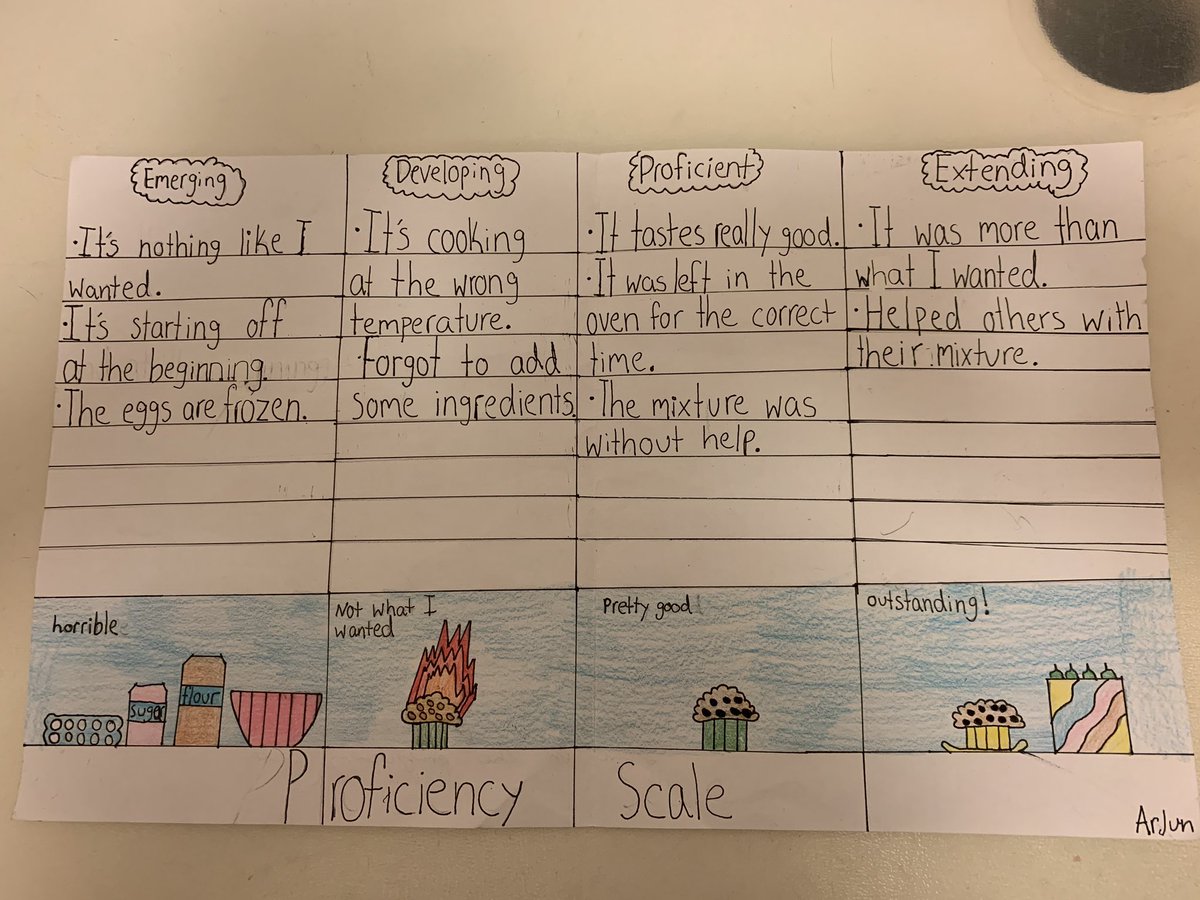 Emerging
·It's nothing like I
wanted.
·It's starting off
at the beginning.
·The eggs are frozen.
Developing
·It's cooking
at the wrong
temperature.
·Forgot to add
some ingredients.
Proficient
·It tastes really good.
·It was left in the
oven for the correct
time.
·The mixture was
without help.
Extending
·It was more than
what I wanted.
·Helped others with
their mixture.
horrible
sugar
flour
Not what I
wanted
Pretty good
outstanding!
Proficiency Scale
ArJun